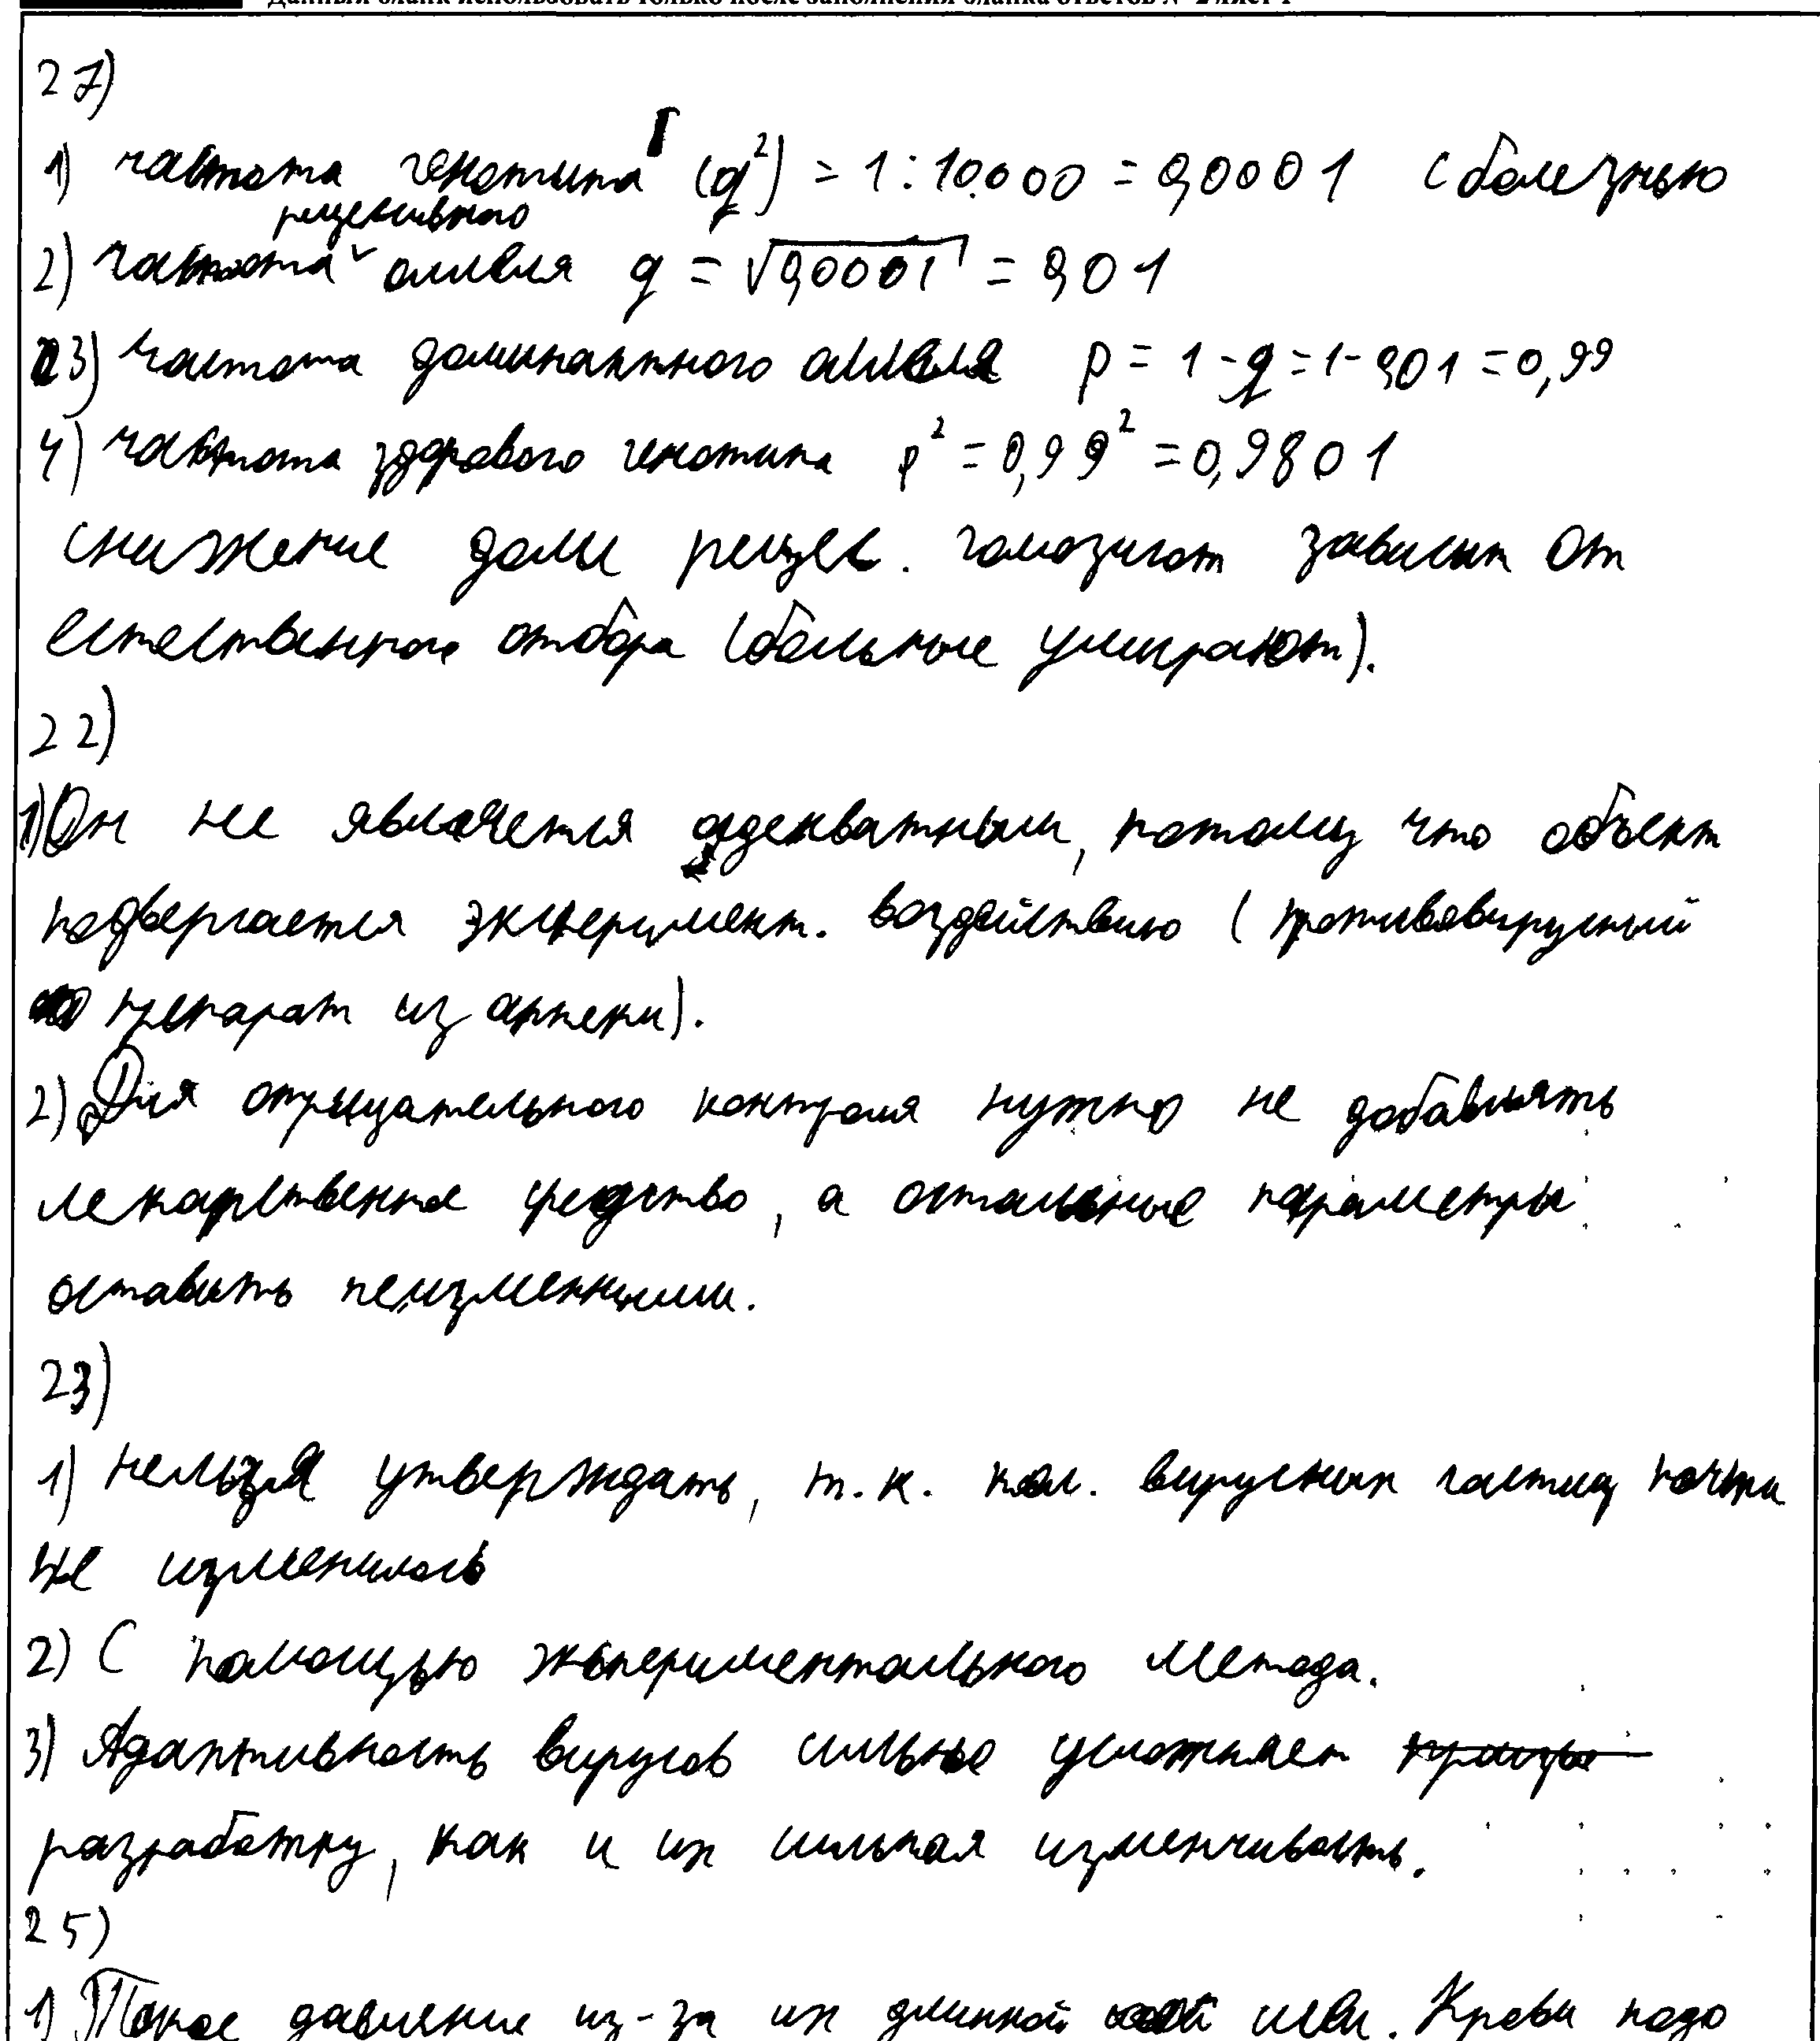 Данный бланк использовать только после заполнения бланка ответов № 2 лист 1
27)
1) частота генотипа (q²) = 1:10.000 = 0,0001 с болезнью
рецессивного
2) частота ˅ аллеля q = √0,0001 = 0,01
3) частота доминантного аллеля p = 1 - q = 1 - 0,01 = 0,99
4) частота здорового генотипа p² = 0,99² = 0,9801
снижение доли рецес. гомозигот зависит от
естественного отбора (больные умирают).
22)
1) Он не является адекватным, потому что объект
подвергается эксперимент. воздействию (противовирусный
препарат из аптеки).
2) Для отрицательного контроля нужно не добавлять
лекарственное средство, а остальные параметры
оставить неизменными.
23)
1) нельзя утверждать, т.к. кол. вирусных частиц почти
не изменилось
2) С помощью экспериментального метода.
3) Адаптивность вирусов сильно усложняет
разработку, как и их сильная изменчивость.
25)
1) Такое давление из-за их длинной шеи. Крови надо